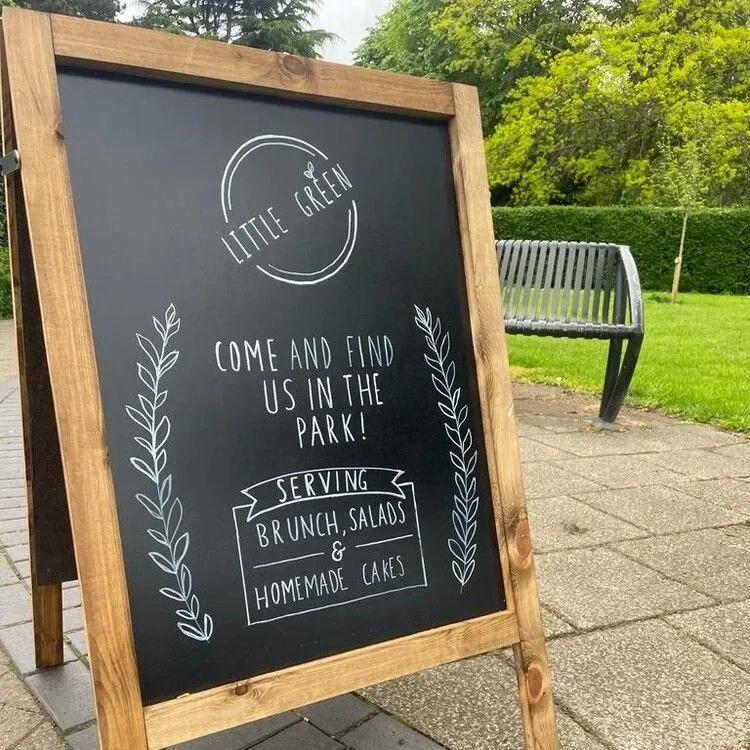 LITTLE GREEN
COME AND FIND
US IN THE
PARK!
SERVING
BRUNCH, SALADS
&
HOMEMADE CAKES